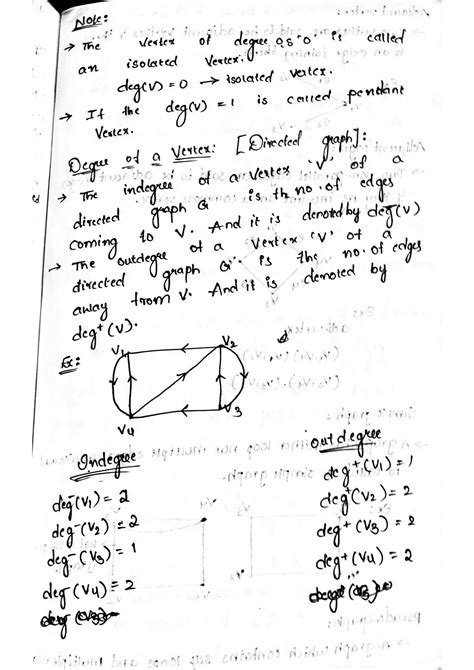 Note:
→ The vertex of degree as '0' is called
an isolated vertex.
deg(v) = 0 → isolated vertex.
→ If the deg(v) = 1 is called pendant
vertex.
Degree of a Vertex: [Directed graph]:
→ The indegree of a vertex 'v' of a
directed graph G is th no. of edges
coming to v. And it is denoted by deg⁻(v)
→ The outdegree of a vertex 'v' of a
directed graph G is the no. of edges
away from v. And it is denoted by
deg⁺(v).
Ex:
V1 V2
V4 V3
Indegree
deg⁻(V1) = 2
deg⁻(V2) = 2
deg⁻(V3) = 1
deg⁻(V4) = 2
outdegree
deg⁺(V1) = 1
deg⁺(V2) = 2
deg⁺(V3) = 2
deg⁺(V4) = 2